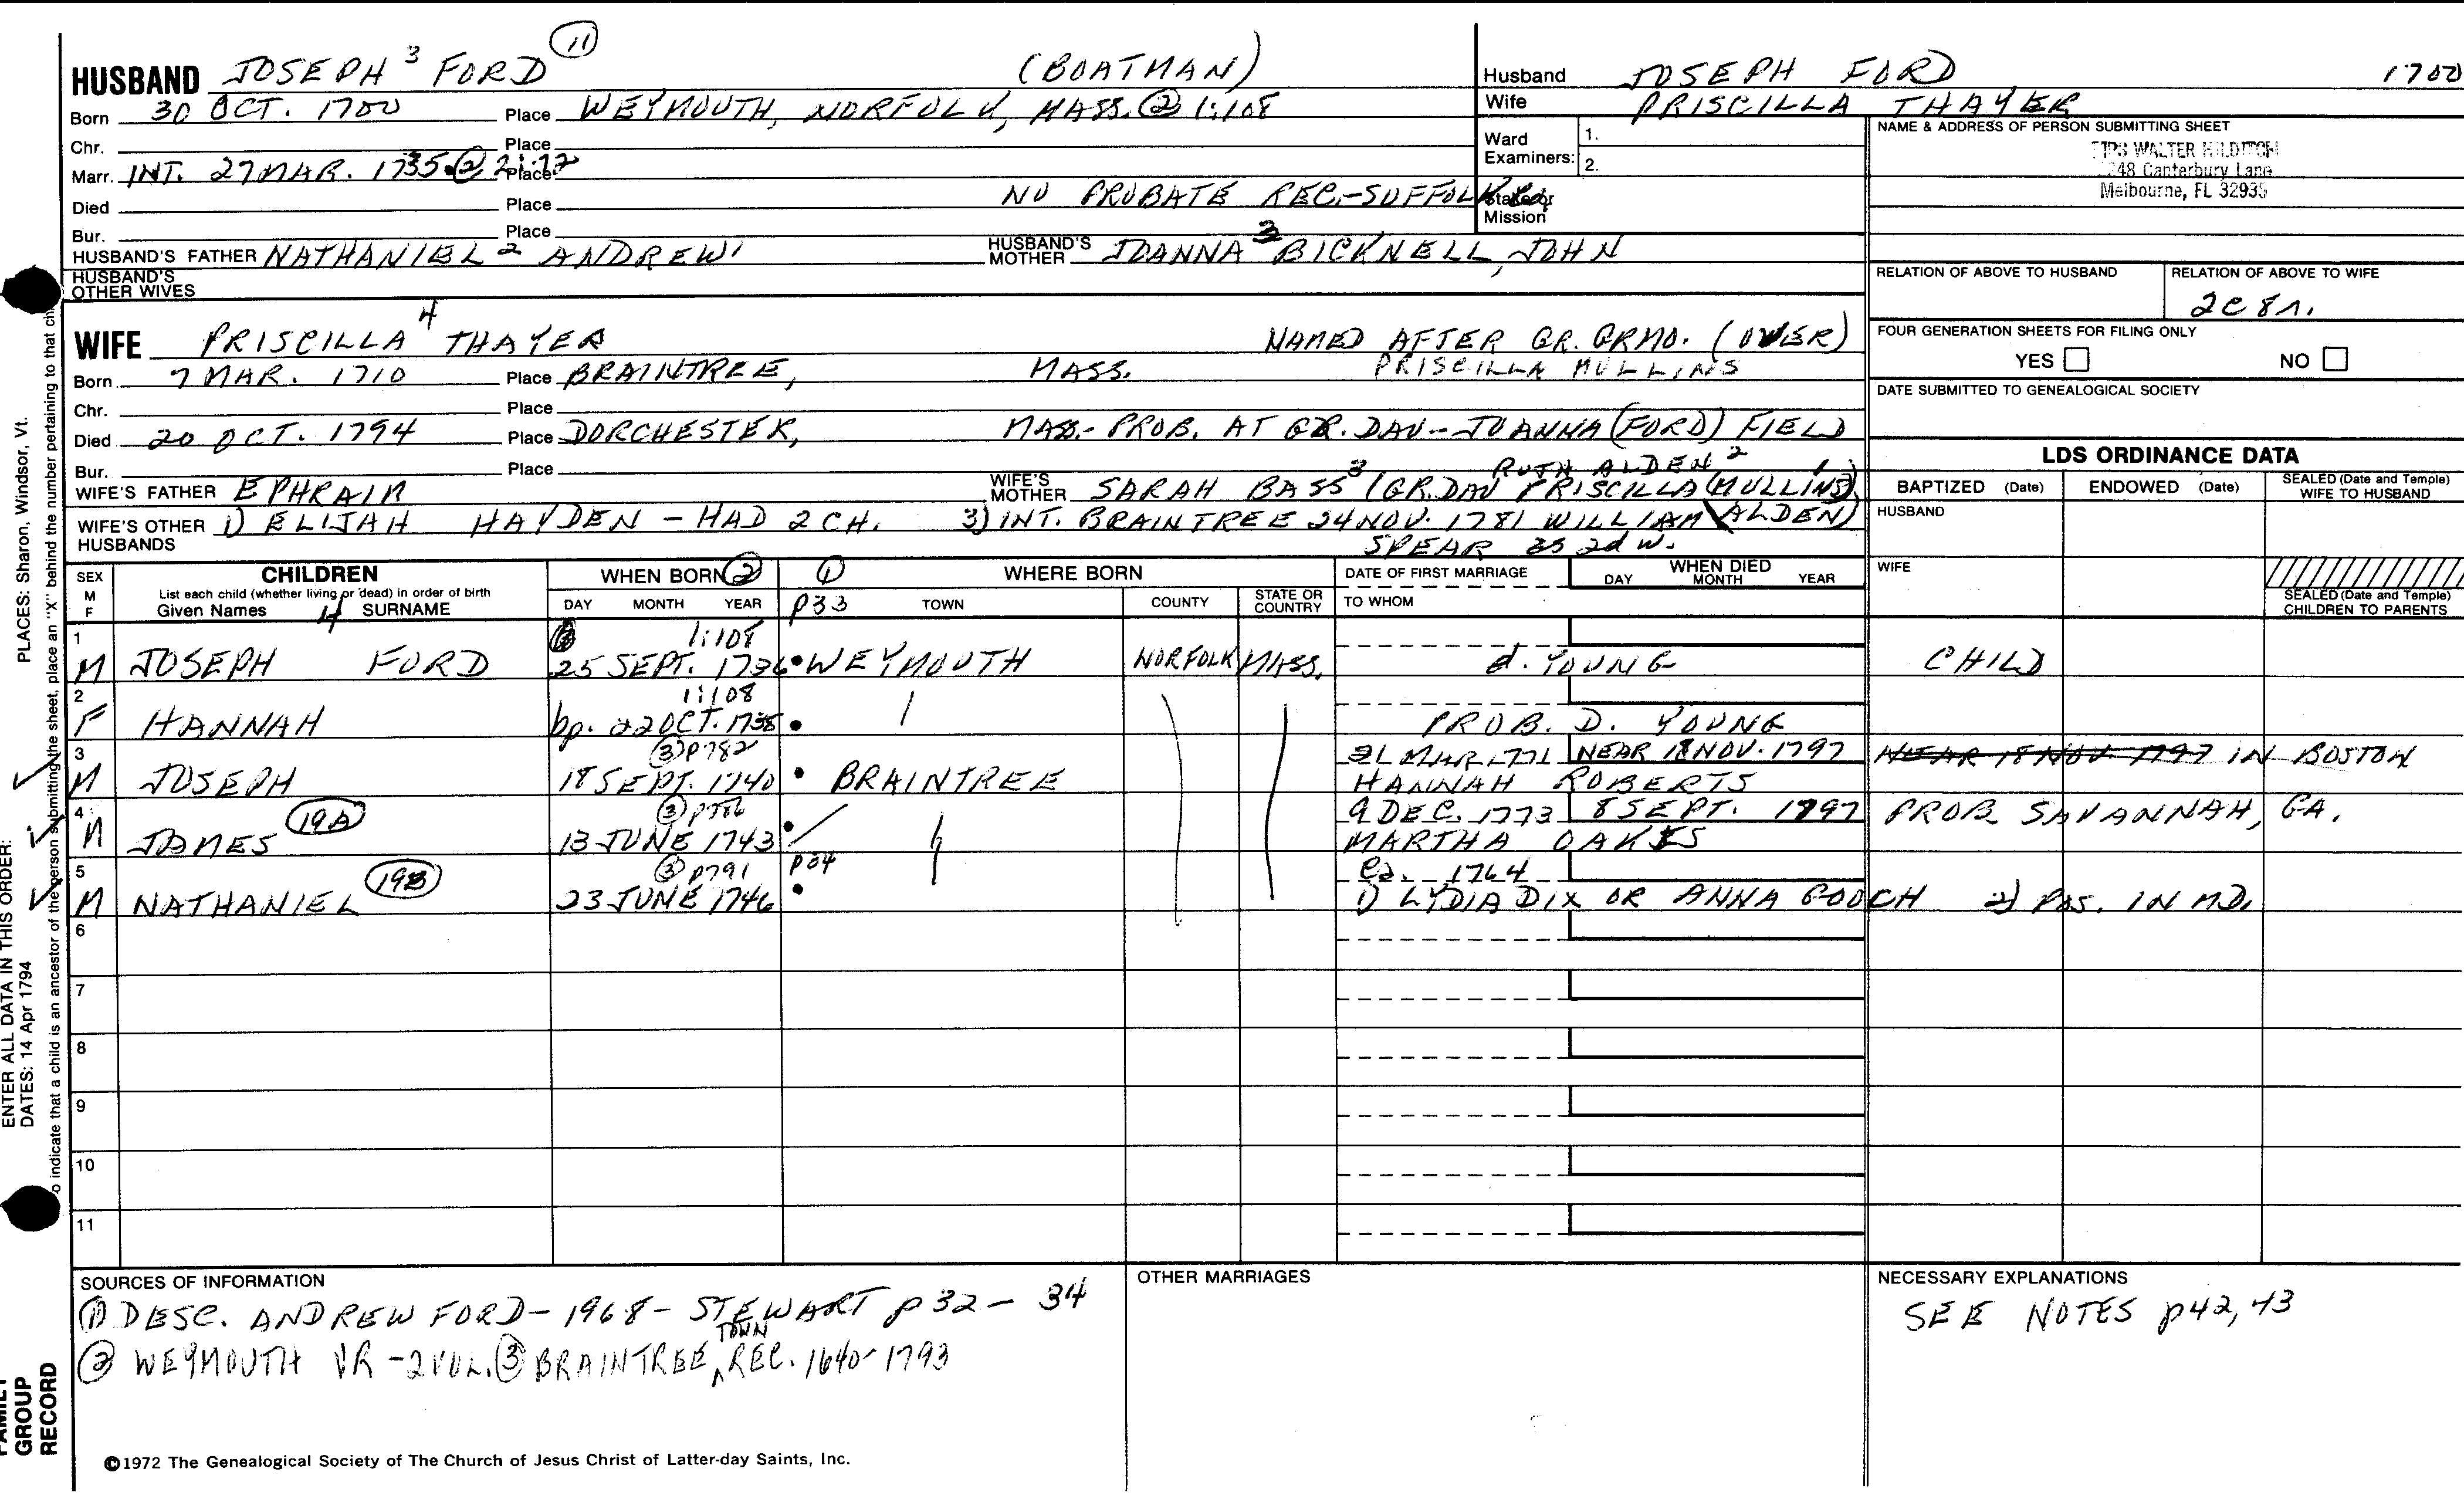 HUSBAND JOSEPH 3 FORD (11) (BOATMAN)
Born 30 OCT. 1700 Place WEYMOUTH, NORFOLK, MASS. (2) 1:108
Chr. Place
Marr. INT. 27 MAR. 1735. (2) 2:72 Place
Died Place NO PROBATE REC.-SUFFOLK
Bur. Place
HUSBAND'S FATHER NATHANIEL 2 ANDREW1 HUSBAND'S MOTHER JOANNA 3 BICKNELL, JOHN
HUSBAND'S OTHER WIVES
Husband JOSEPH FORD 1700
Wife PRISCILLA THAYER
Ward Examiners: 1.
2.
Stake or Mission
NAME & ADDRESS OF PERSON SUBMITTING SHEET
WALTER
Canterbury Lane
Melbourne, FL 32935
RELATION OF ABOVE TO HUSBAND RELATION OF ABOVE TO WIFE
2C 8r.
FOUR GENERATION SHEETS FOR FILING ONLY
YES NO
DATE SUBMITTED TO GENEALOGICAL SOCIETY
WIFE PRISCILLA 4 THAYER NAMED AFTER GR. GRMO. (OVER)
PRISCILLA MULLINS
Born 7 MAR. 1710 Place BRAINTREE, MASS.
Chr. Place
Died 20 OCT. 1794 Place DORCHESTER, MASS.- PROB. AT GR. DAU-- JOANNA (FORD) FIELD
Bur. Place RUTH ALDEN 2
WIFE'S FATHER EPHRAIM WIFE'S MOTHER SARAH BASS 3 (GR. DAU PRISCILLA (MULLINS) 1
WIFE'S OTHER HUSBANDS 1) ELIJAH HAYDEN - HAD 2 CH. 3) INT. BRAINTREE 24 NOV. 1781 WILLIAM ALDEN)
SPEAR as 2d W.
LDS ORDINANCE DATA
BAPTIZED (Date) ENDOWED (Date) SEALED (Date and Temple) WIFE TO HUSBAND
HUSBAND
WIFE
SEALED (Date and Temple) CHILDREN TO PARENTS
SEX M F CHILDREN
List each child (whether living or dead) in order of birth
Given Names 4 SURNAME
WHEN BORN (2) DAY MONTH YEAR
(1) p33 WHERE BORN TOWN COUNTY STATE OR COUNTRY
DATE OF FIRST MARRIAGE
TO WHOM
WHEN DIED DAY MONTH YEAR
1 1:108
M JOSEPH FORD 25 SEPT. 1736 WEYMOUTH NORFOLK MASS. d. YOUNG CHILD
2 1:108
F HANNAH bp. 22 OCT. 1738 PROB. D. YOUNG
3 (3) p782 21 MAR 1771 NEAR 18 NOV. 1797 NEAR 18 NOV. 1797 IN BOSTON
M JOSEPH 18 SEPT. 1740 BRAINTREE HANNAH ROBERTS
4 (19A) (3) p786 9 DEC. 1773 8 SEPT. 1797 PROB SAVANNAH, GA.
M JAMES 13 JUNE 1743 MARTHA OAKES
5 (19B) (3) p791 p34 Ca. 1764
M NATHANIEL 23 JUNE 1746 1) LYDIA DIX OR ANNA GOOCH 2) POS. IN MD.
6
7
8
9
10
11
SOURCES OF INFORMATION
(1) DESC. ANDREW FORD - 1968 - STEWART p 32 - 34
(2) WEYMOUTH VR - 2 VOL. (3) BRAINTREE TOWN REC. 1640-1793
OTHER MARRIAGES
NECESSARY EXPLANATIONS
SEE NOTES p42, 43
©1972 The Genealogical Society of The Church of Jesus Christ of Latter-day Saints, Inc.
ENTER ALL DATA IN THIS ORDER:
DATES: 14 Apr 1794
PLACES: Sharon, Windsor, Vt.
o indicate that a child is an ancestor of the person submitting the sheet, place an "X" behind the number pertaining to that
FAMILY GROUP RECORD